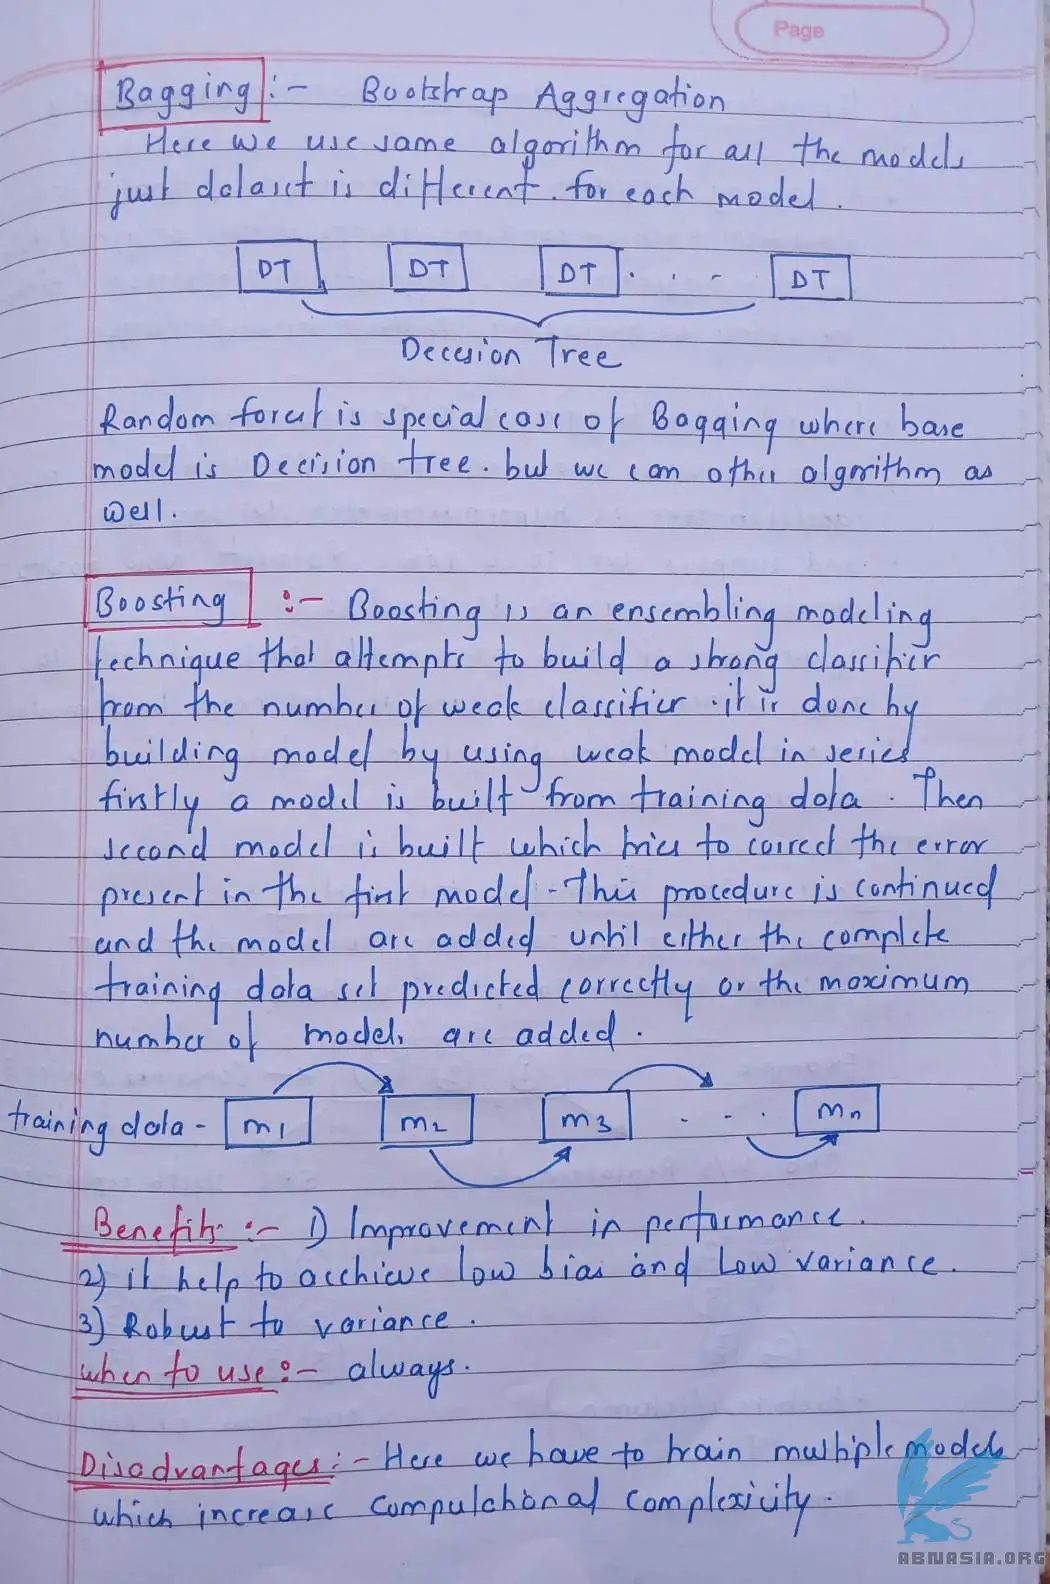 Page
Bagging :- Bootstrap Aggregation
Here we use same algorithm for all the models
just dataset is different. for each model.
DT DT DT . . - DT
Decesion Tree
Random forest is special case of Bagging where base
model is Decision tree. but we can other algorithm as
well.
Boosting :- Boosting is an ensembling modeling
technique that attempts to build a strong classifier
from the number of weak classifier . it is done by
building model by using weak model in series
firstly a model is built from training data. Then
second model is built which tries to correct the error
present in the first model - This procedure is continued
and the model are added until either the complete
training data set predicted correctly or the maximum
number of models are added.
training data - m1 m2 m3 - - . mn
Benefits :- 1) Improvement in performance.
2) it help to acchieve low bias and Low variance.
3) Robust to variance.
when to use :- always.
Disadvantages :- Here we have to train multiple models
which increase compulational complexicity.
ABNASIA.ORG